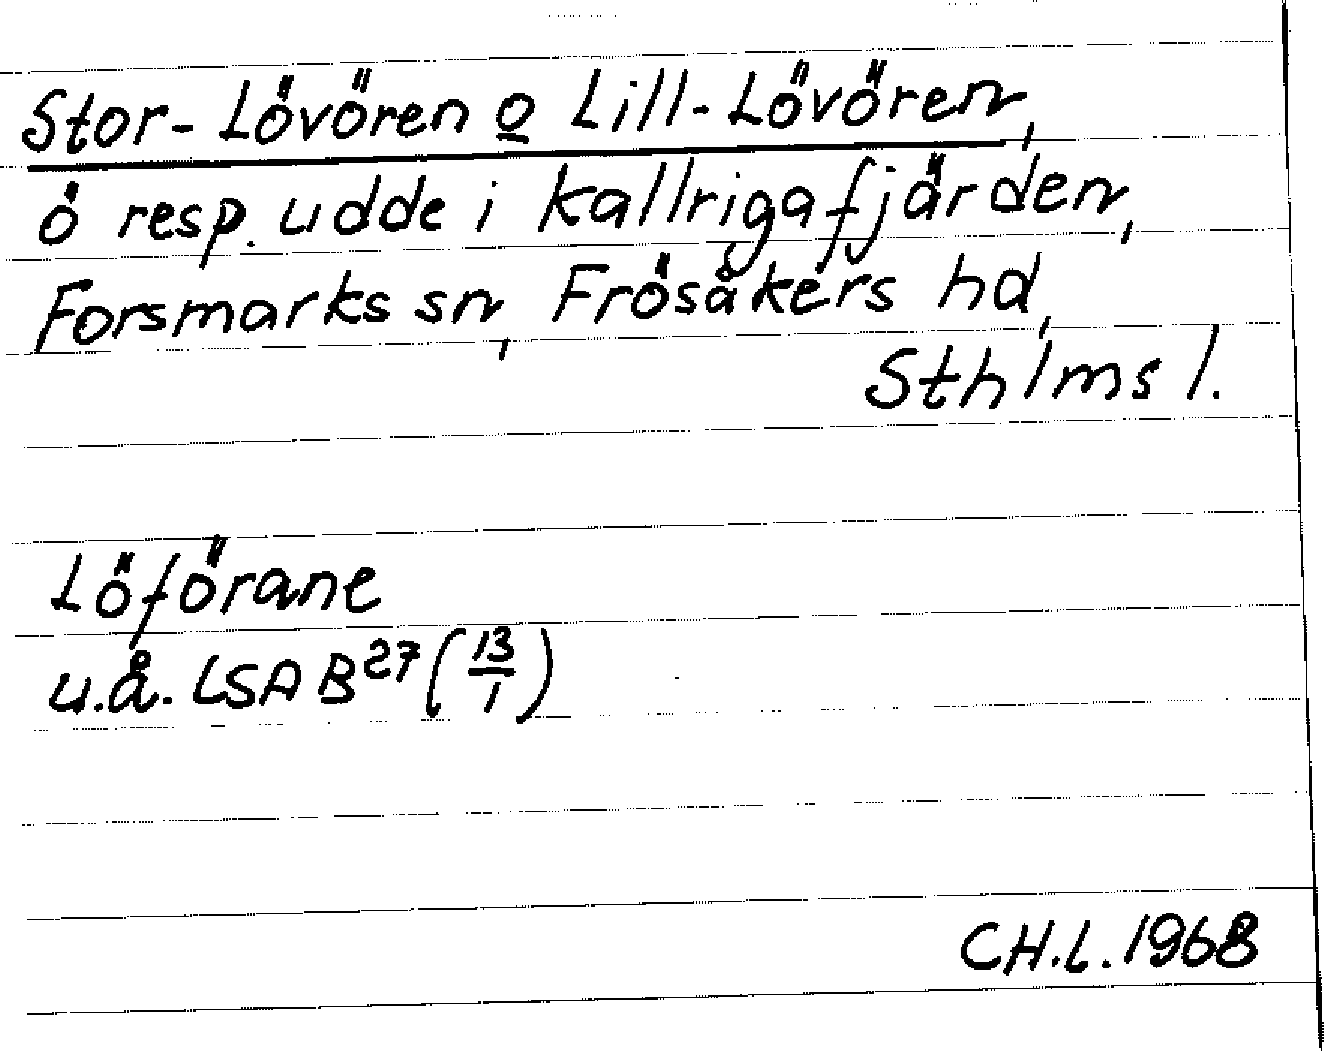 Stor-Lövören o Lill-Lövören,
ö resp. udde i Kallrigafjärden,
Forsmarks sn, Frösåkers hd,
Sthlms l.
Löförane
u.å. LSA B²⁷ (13/1)
CH.L. 1968